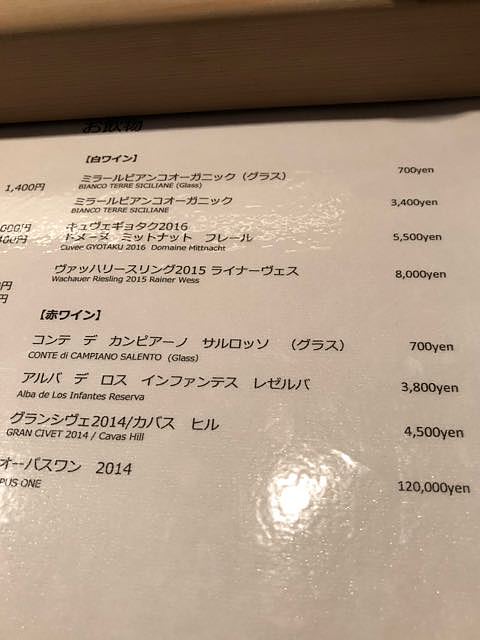 お飲物
【白ワイン】
1,400円
ミラールビアンコオーガニック（グラス） 700yen
BIANCO TERRE SICILIANE (Glass)
ミラールビアンコオーガニック 3,400yen
BIANCO TERRE SICILIANE
キュヴェギョタク2016
ドメーヌ ミットナット フレール 5,500yen
Cuver GYOTAKU 2016 Domaine Mittnacht
ヴァッハリースリング2015 ライナーヴェス 8,000yen
Wachauer Riesling 2015 Rainer Wess
円
円
【赤ワイン】
コンテ デ カンピアーノ サルロッソ （グラス） 700yen
CONTE di CAMPIANO SALENTO (Glass)
アルバ デ ロス インファンテス レゼルバ 3,800yen
Alba de Los Infantes Reserva
グランシヴェ2014/カバス ヒル 4,500yen
GRAN CIVET 2014 / Cavas Hill
オーパスワン 2014 120,000yen
PUS ONE